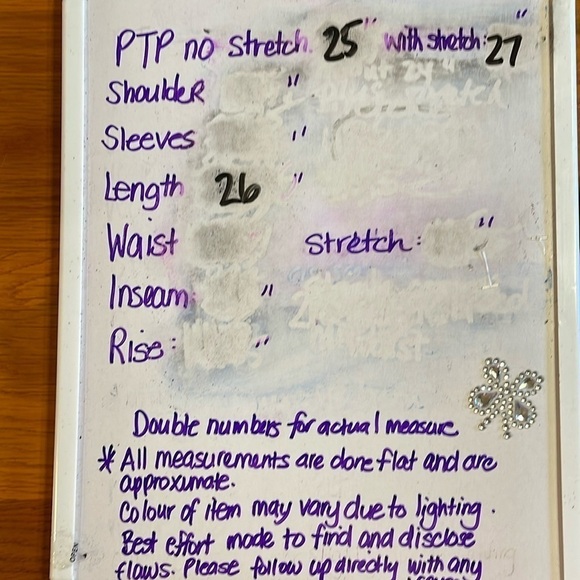 PTP no stretch. 25" with stretch: 27"
Shoulder "
Sleeves "
Length 26 "
Waist stretch: "
Inseam: "
Rise: "
Double numbers for actual measure
* All measurements are done flat and are
approximate.
Colour of item may vary due to lighting.
Best effort made to find and disclose
flaws. Please follow up directly with any
OPEN